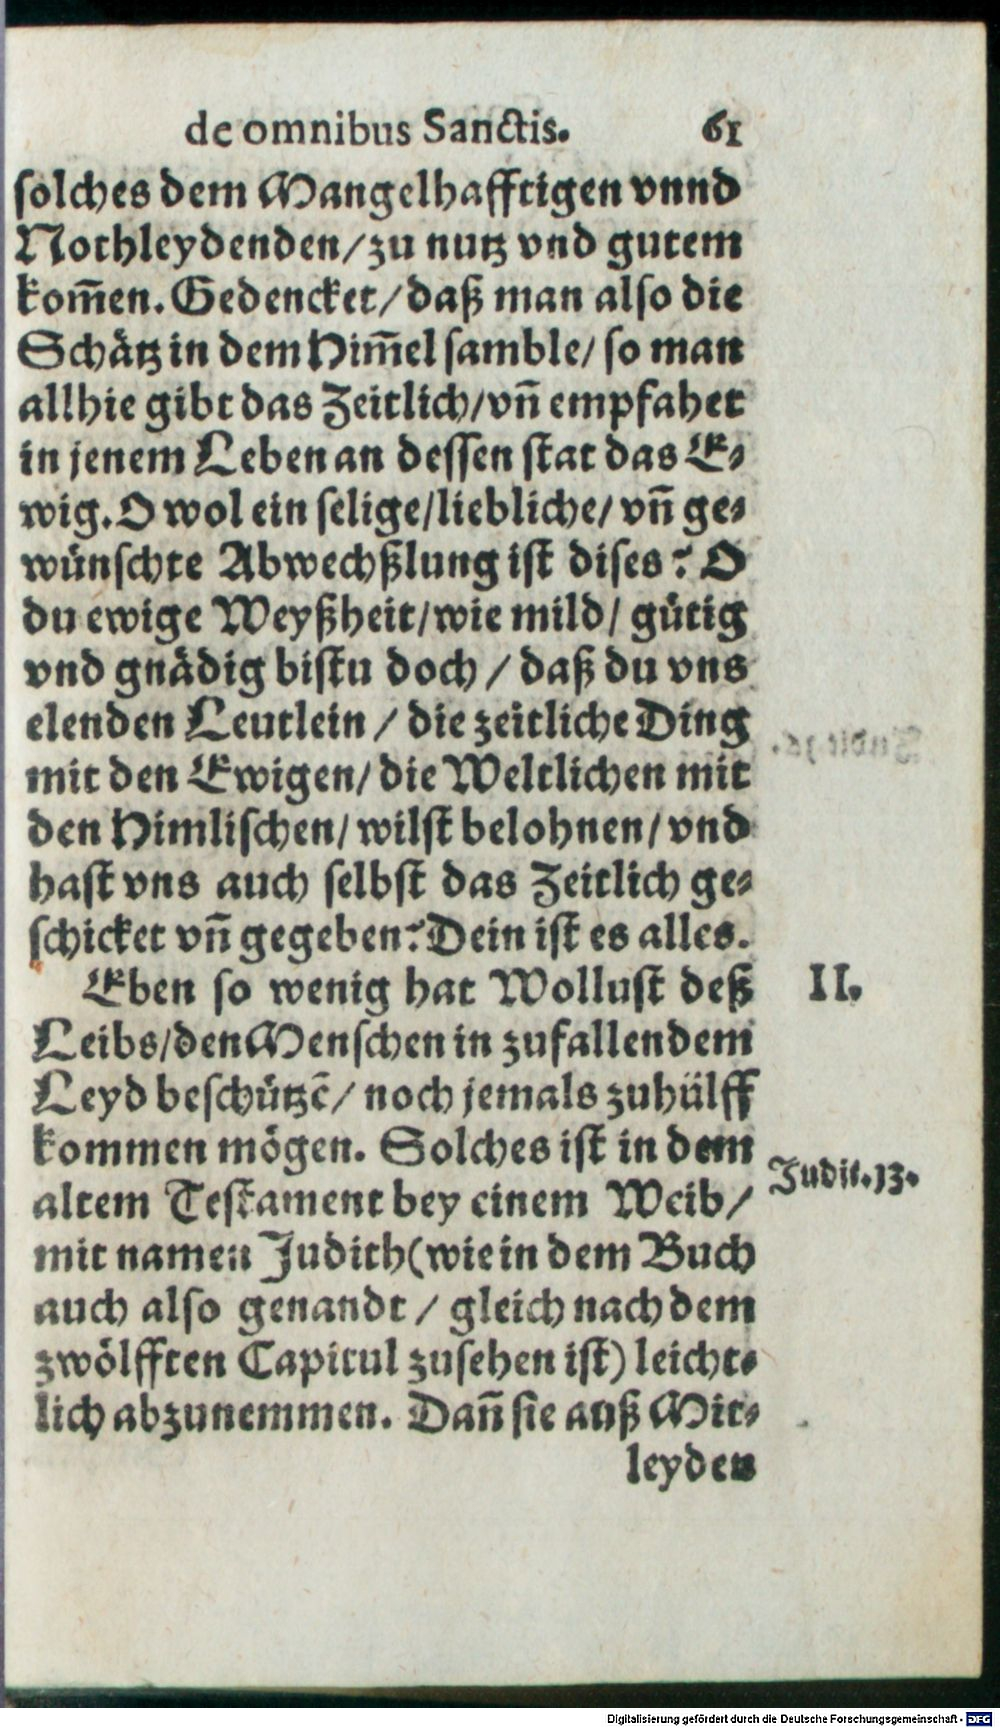 de omnibus Sanctis. 61
solches dem Mangelhafftigen vnnd
Nothleydenden/zu nutz vnd gutem
kom̃en. Gedencket/daß man also die
Schätz in dem Him̃el samble/ so man
allhie gibt das Zeitlich/vñ empfahet
in jenem Leben an dessen stat das E-
wig. O wol ein selige/liebliche/ vñ ge-
wünschte Abwechßlung ist dises? O
du ewige Weyßheit/wie mild/ gütig
vnd gnädig bistu doch / daß du vns
elenden Leutlein / die zeitliche Ding
mit den Ewigen/die Weltlichen mit
den Himlischen/ wilst belohnen/ vnd
hast vns auch selbst das Zeitlich ge-
schicket vñ gegeben? Dein ist es alles.
Eben so wenig hat Wollust deß II.
Leibs/den Menschen in zufallendem
Leyd beschützẽ/ noch jemals zuhülff
kommen mögen. Solches ist in dem
altem Testament bey einem Weib/ Judit. 13.
mit namen Judith (wie in dem Buch
auch also genandt / gleich nach dem
zwölfften Capitul zusehen ist) leicht-
lich abzunemmen. Dañ sie auß Mit-
leyden
Digitalisierung gefördert durch die Deutsche Forschungsgemeinschaft - DFG